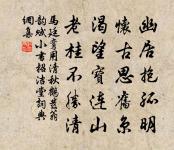 幽居抱孤明
懷古思舊京
渴望寶連山
老桂不勝清
馬廷鸞用清秋鶴髮翁
韻賦小書招浩堂詞典
網集